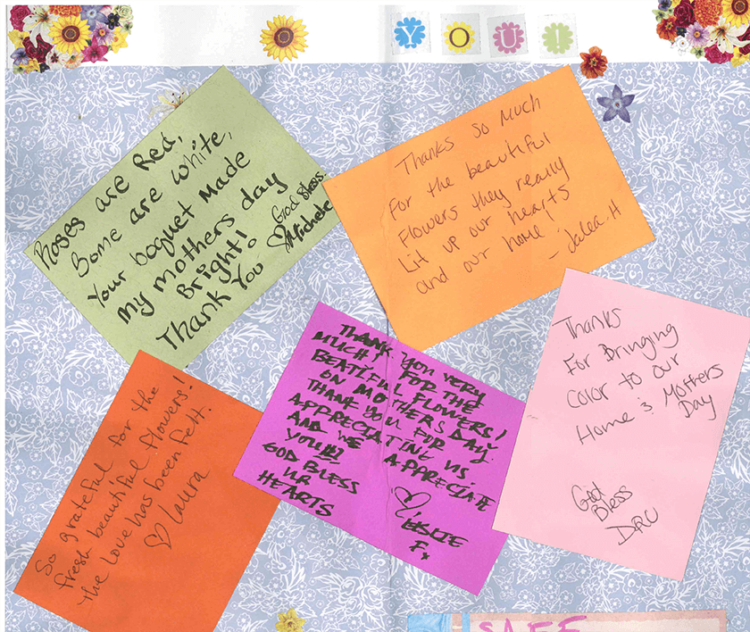 YOU!
Roses are Red,
Some are white,
Your boquet Made
my mothers day
Bright!
Thank You
God Bless.
♡Michele
Thanks So Much
For the beautiful
Flowers they really
Lit up our hearts
and our home!
- Jalea. H
THANK YOU VERY
MUCH! FOR THE
BEATIFUL FLOWERS!
ON MOTHERS DAY.
THANK YOU FOR
APPRECIATING US
AND WE APPRECIATE
YOU!!!
GOD BLESS
UR
HEARTS
♡
LESLIE
F.
Thanks
For Bringing
Color to our
Home & Mothers
Day
God
Bless
So grateful for the
fresh beautiful flowers!
The love has been felt.
♡ Laura
SAFE